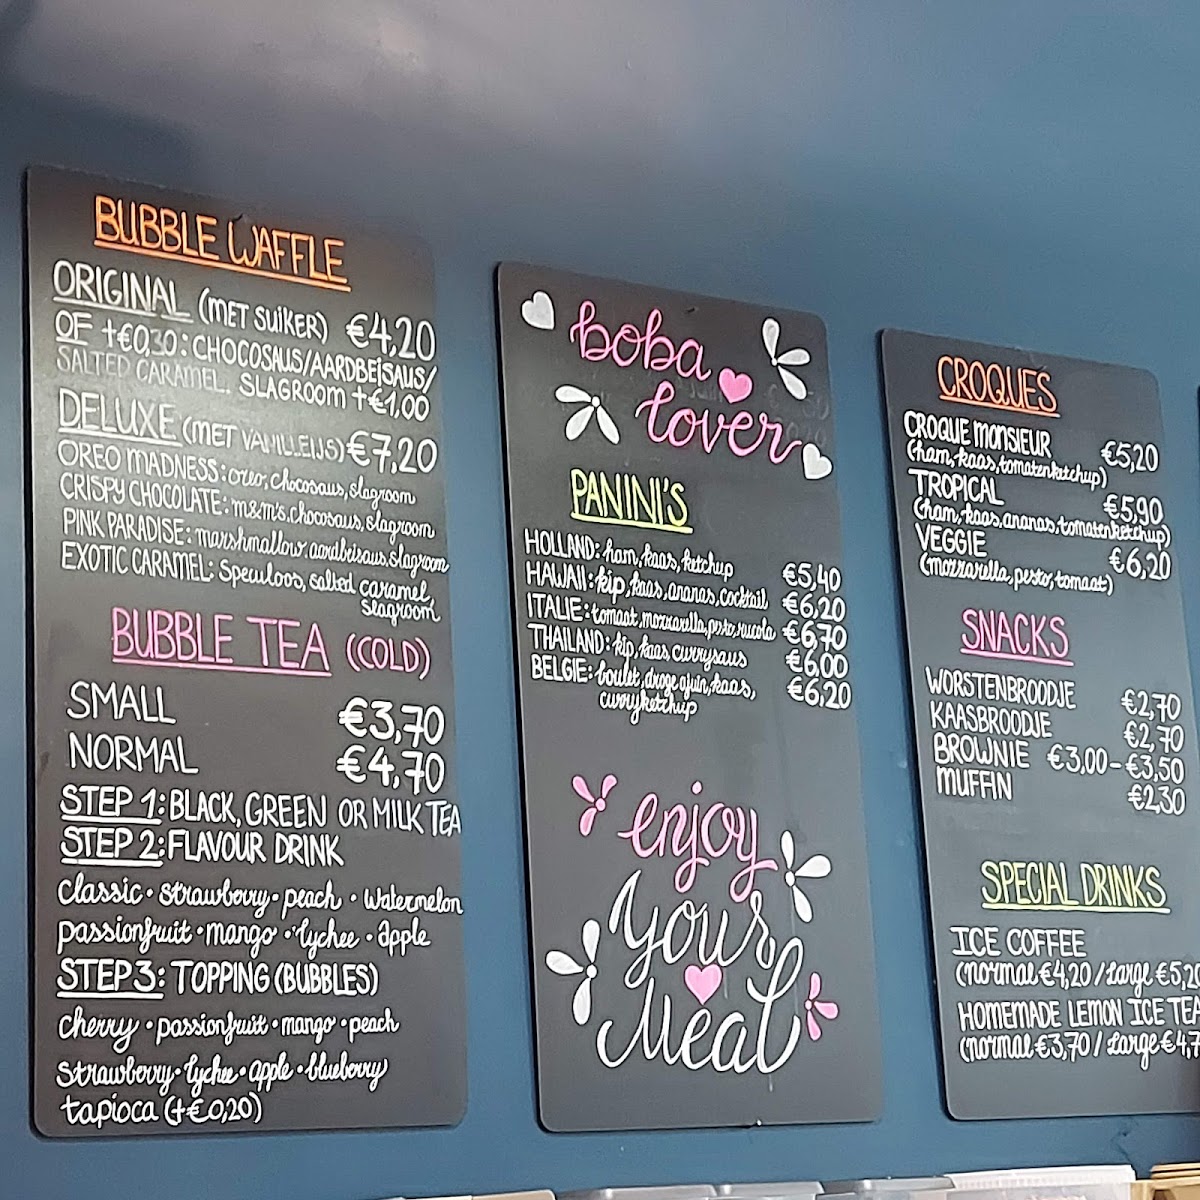 BUBBLE WAFFLE
ORIGINAL (MET SUIKER) €4,20
OF +€0,30: CHOCOSAUS/AARDBEISAUS/
SALTED CARAMEL. SLAGROOM +€1,00
DELUXE (MET VANILLEIJS) €7,20
OREO MADNESS: oreo, chocosaus, slagroom
CRISPY CHOCOLATE: m&m's, chocosaus, slagroom
PINK PARADISE: marshmallow, aardbeisaus, slagroom
EXOTIC CARAMEL: Speculoos, salted caramel,
slagroom
BUBBLE TEA (COLD)
SMALL €3,70
NORMAL €4,70
STEP 1: BLACK, GREEN OR MILK TEA
STEP 2: FLAVOUR DRINK
classic • strawberry • peach • watermelon
passionfruit • mango • lychee • apple
STEP 3: TOPPING (BUBBLES)
cherry • passionfruit • mango • peach
strawberry • lychee • apple • blueberry
tapioca (+€0,20)
boba
lover
PANINI'S
HOLLAND: ham, kaas, ketchup €5,40
HAWAII: kip, kaas, ananas, cocktail €6,20
ITALIE: tomaat, mozzarella, pesto, rucola €6,70
THAILAND: kip, kaas, currysaus €6,00
BELGIE: boulet, droge ajuin, kaas, €6,20
curryketchup
enjoy
your
Meal
CROQUES
CROQUE MONSIEUR €5,20
(ham, kaas, tomatenketchup)
TROPICAL €5,90
(ham, kaas, ananas, tomatenketchup)
VEGGIE €6,20
(mozzarella, pesto, tomaat)
SNACKS
WORSTENBROODJE €2,70
KAASBROODJE €2,70
BROWNIE €3,00-€3,50
MUFFIN €2,30
SPECIAL DRINKS
ICE COFFEE
(normal €4,20 / Large €5,20
HOMEMADE LEMON ICE TEA
(normal €3,70 / Large €4,7